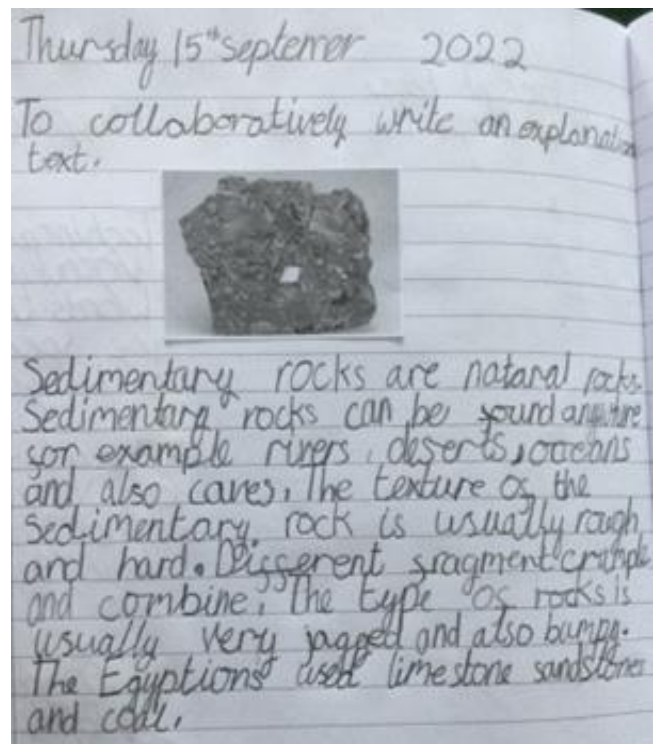 Thursday 15th Septemer 2022
To collaboratively write an explanation
text.
Sedimentary rocks are nataral rocks.
Sedimentary rocks can be found anywhere
for example rivers, deserts, oceans
and also caves. The texture of the
Sedimentary rock is usually rough
and hard. Different fragment crumple
and combine. The type of rocks is
usually very jagged and also bumpy.
The Egyptions used limestone sandstones
and coal.